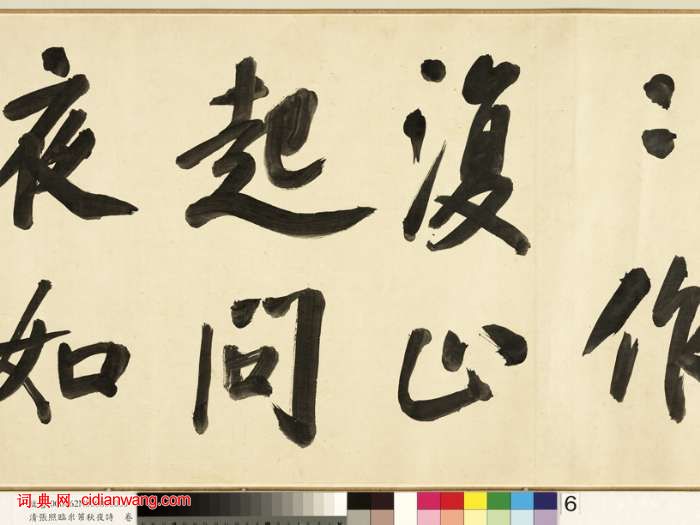 作
復止
起問
夜如
词典网 cidianwang.com
清張照臨米芾秋夜詩 卷
6